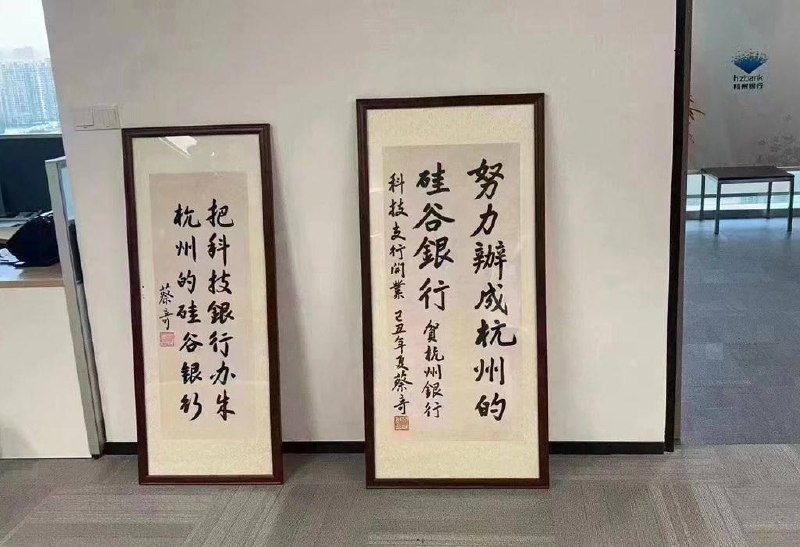 把科技銀行办成
杭州的硅谷银行
蔡奇
努力辦成杭州的
硅谷銀行
賀杭州銀行
科技支行開業
己丑年夏蔡奇
hzbank
杭州银行